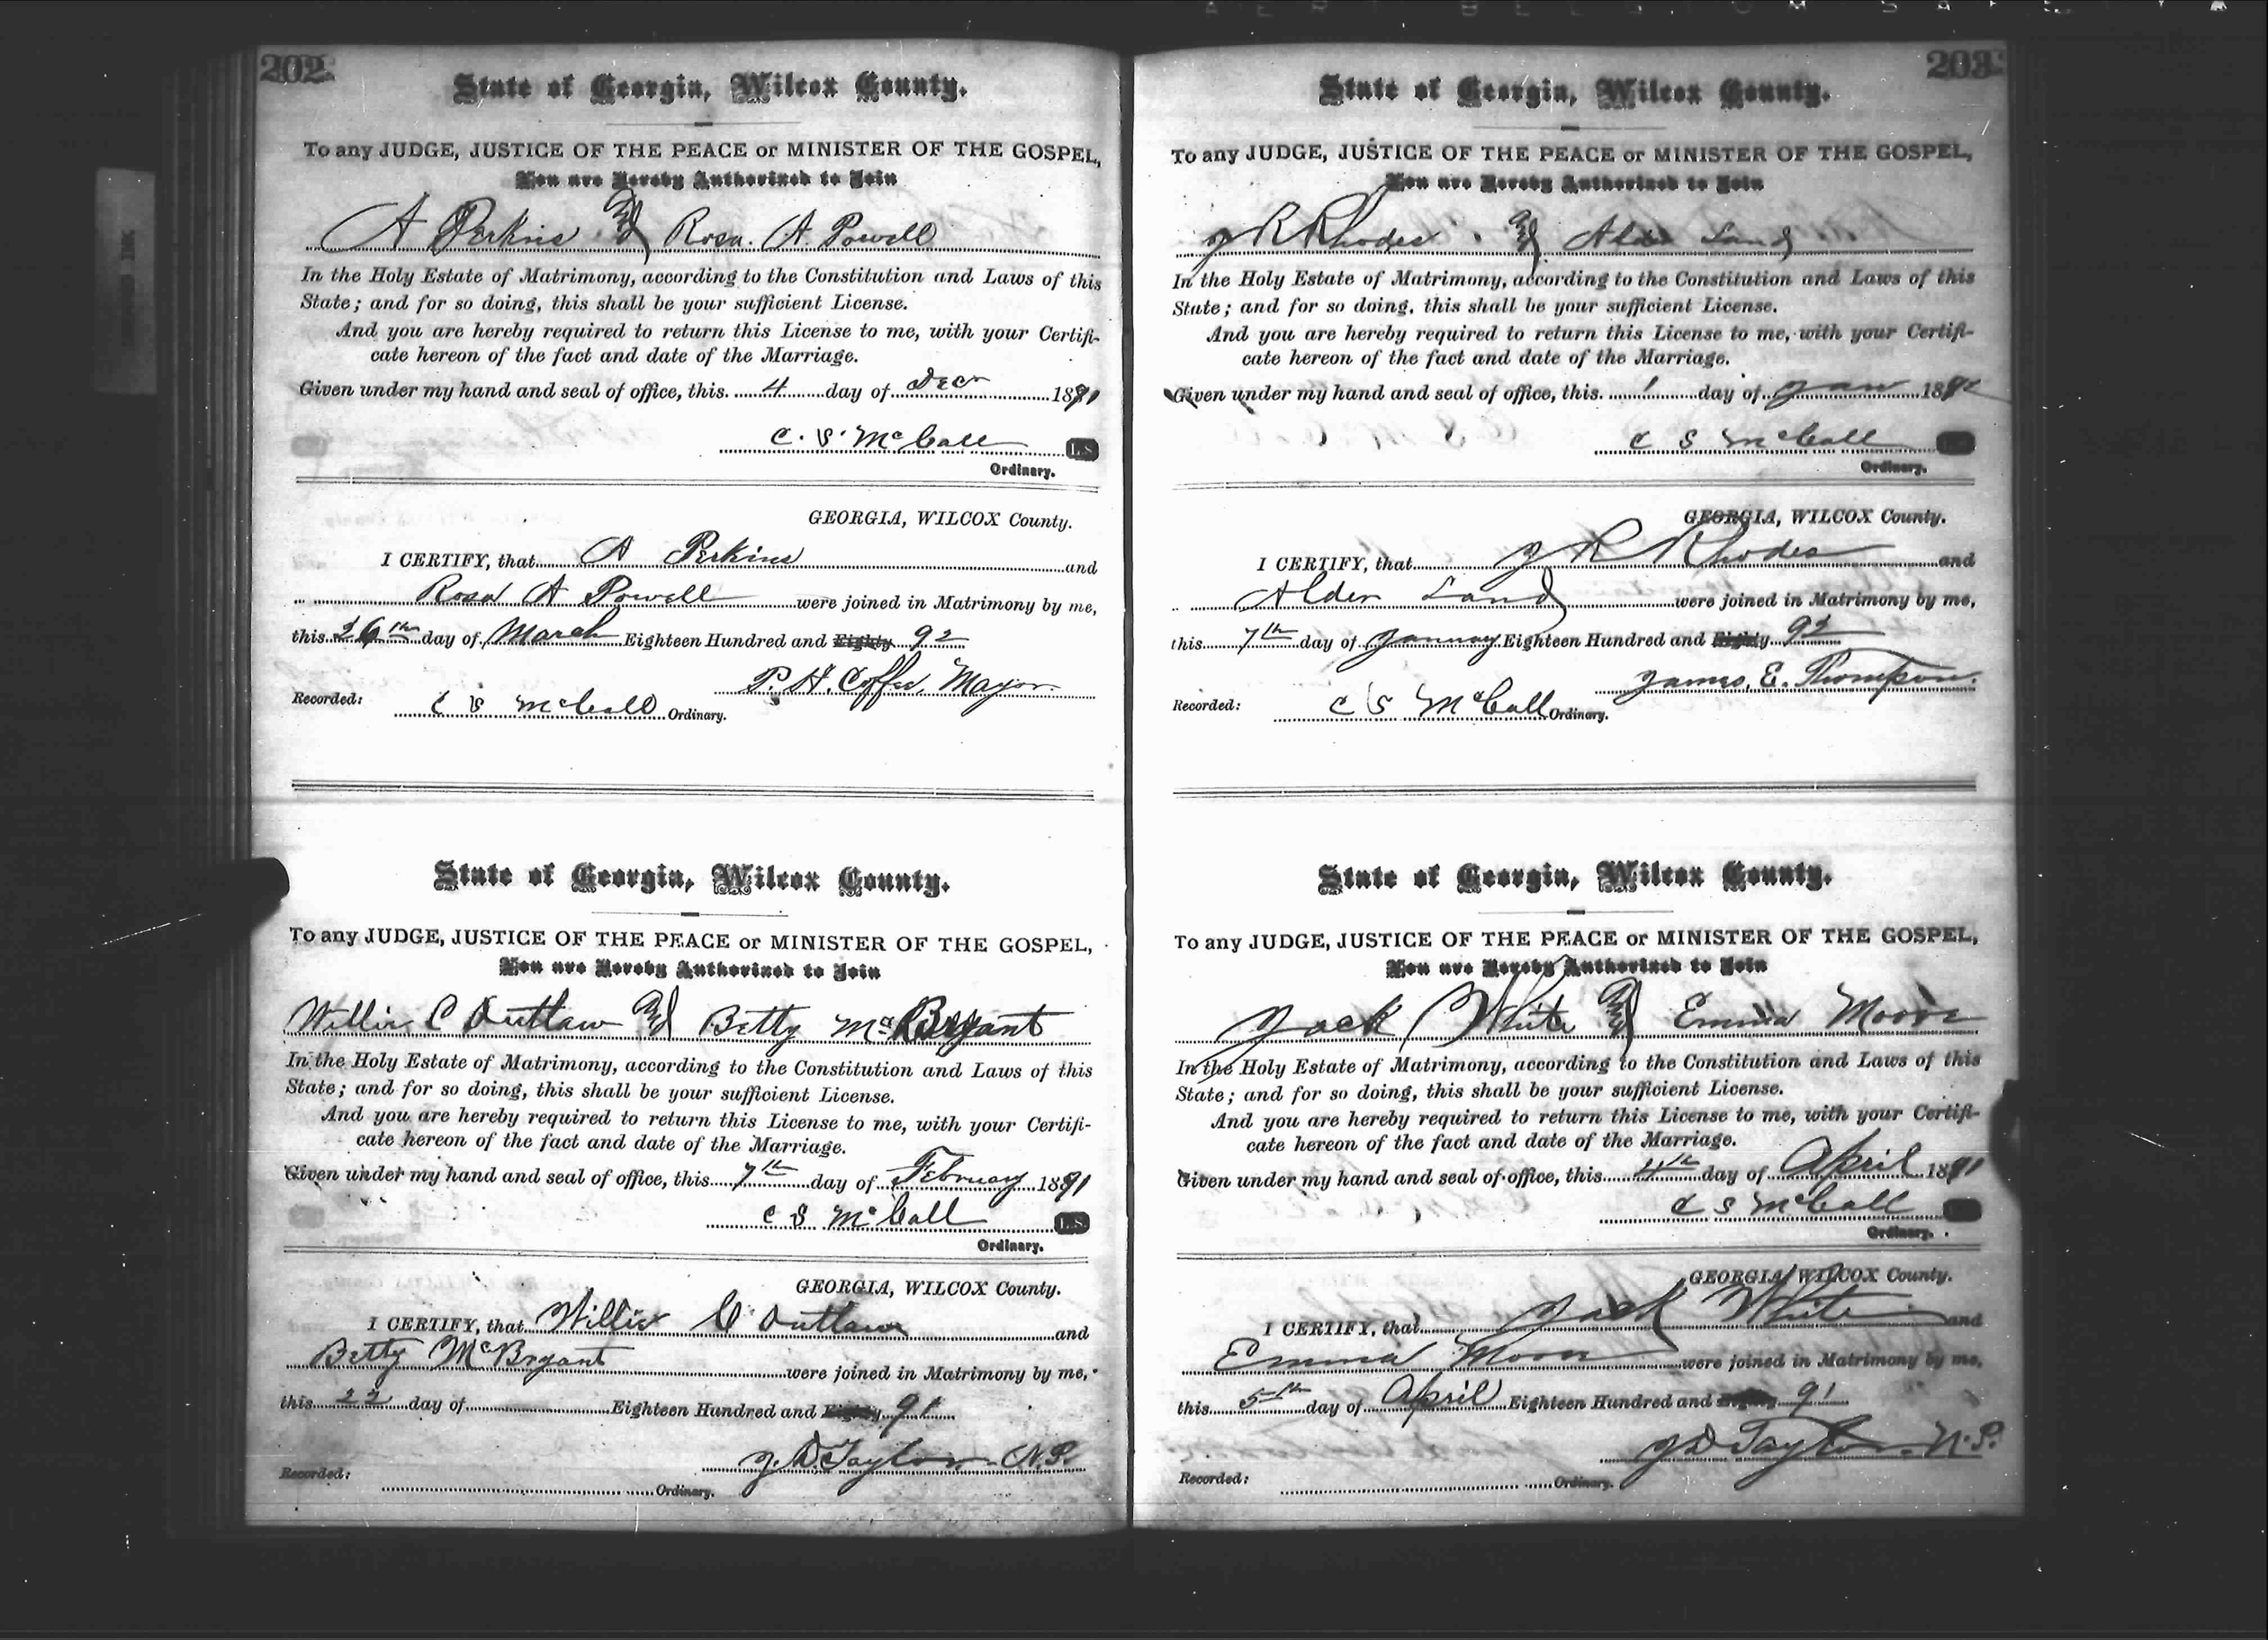 202
State of Georgia, Wilcox County.
To any JUDGE, JUSTICE OF THE PEACE or MINISTER OF THE GOSPEL,
You are Hereby Authorized to Join
A Perkins and Rosa. A. Powell
In the Holy Estate of Matrimony, according to the Constitution and Laws of this
State; and for so doing, this shall be your sufficient License.
And you are hereby required to return this License to me, with your Certifi-
cate hereon of the fact and date of the Marriage.
Given under my hand and seal of office, this 4 day of Dec 1891
C. S. McCall L.S.
Ordinary.
GEORGIA, WILCOX County.
I CERTIFY, that A Perkins and
Rosa A Powell were joined in Matrimony by me,
this 26th day of March Eighteen Hundred and Eighty 92
P. H. Coffee, Mayor.
Recorded: C S McCall Ordinary.
State of Georgia, Wilcox County.
To any JUDGE, JUSTICE OF THE PEACE or MINISTER OF THE GOSPEL,
You are Hereby Authorized to Join
Willie C Outlaw and Betty McBryant
In the Holy Estate of Matrimony, according to the Constitution and Laws of this
State; and for so doing, this shall be your sufficient License.
And you are hereby required to return this License to me, with your Certifi-
cate hereon of the fact and date of the Marriage.
Given under my hand and seal of office, this 7th day of February 1891
C S McCall L.S.
Ordinary.
GEORGIA, WILCOX County.
I CERTIFY, that Willie C Outlaw and
Betty McBryant were joined in Matrimony by me,
this 22 day of Eighteen Hundred and Eighty 91
J. D. Taylor N.P.
Recorded: Ordinary.
203
State of Georgia, Wilcox County.
To any JUDGE, JUSTICE OF THE PEACE or MINISTER OF THE GOSPEL,
You are Hereby Authorized to Join
J R Rhodes and Alder Land
In the Holy Estate of Matrimony, according to the Constitution and Laws of this
State; and for so doing, this shall be your sufficient License.
And you are hereby required to return this License to me, with your Certifi-
cate hereon of the fact and date of the Marriage.
Given under my hand and seal of office, this 1 day of Jan 1892
C S McCall
Ordinary.
GEORGIA, WILCOX County.
I CERTIFY, that J R Rhodes and
Alder Land were joined in Matrimony by me,
this 7th day of January Eighteen Hundred and Eighty 92
James. E. Thompson.
Recorded: C S McCall Ordinary.
State of Georgia, Wilcox County.
To any JUDGE, JUSTICE OF THE PEACE or MINISTER OF THE GOSPEL,
You are Hereby Authorized to Join
Jack White and Emma Moore
In the Holy Estate of Matrimony, according to the Constitution and Laws of this
State; and for so doing, this shall be your sufficient License.
And you are hereby required to return this License to me, with your Certifi-
cate hereon of the fact and date of the Marriage.
Given under my hand and seal of office, this 4th day of April 1891
C S McCall
Ordinary.
GEORGIA, WILCOX County.
I CERTIFY, that Jack White and
Emma Moore were joined in Matrimony by me,
this 5th day of April Eighteen Hundred and Eighty 91
J D Taylor N.P.
Recorded: Ordinary.